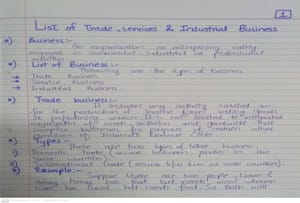 1
List of Trade, services & Industrial Business
*) Business:-
An organization or enterprising entity
engaged in commercial, industrial or professional
activities
*) List of Business:-
Following are the types of business
→ Trade business
→ Service business
→ Industrial business
*) Trade business:-
It includes any activity carried
for the production of income from selling goods
or performing services. It is not limited to integrated
aggregates of assets, activities and goodwill that
comprise businesses for purpose of certain other
provisions of Internal Revenue Code
*) Types:-
There are two types of trade business
1) Domestic trade (occurs between parties in the
same countries).
2) International Trade (occurs b/w two or more countries).
*) Example:-
Suppose there are two people - Liam &
Henry. Henry has food but needs wool whereas
Liam has wool but needs food. So both will